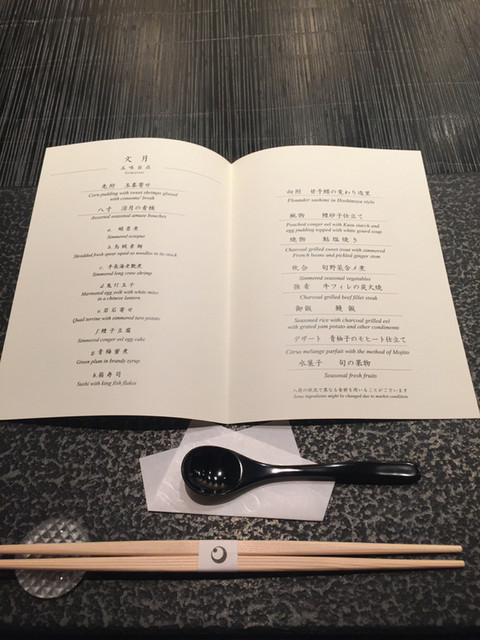 文月
先附 玉蜀黍寄せ
Corn pudding with sweet shrimps glazed
with consomé broth
八寸 涼月の肴核
Assorted seasonal amuse bouches
a.
Simmered octopus
b. 烏賊素麺
Shredded fresh spear squid as noodles in its stock
c. 手長海老艶煮
Simmered long arm shrimp
d. 鬼灯玉子
Marinated egg yolk with white miso
in a chinese lantern
e. 岩石寄せ
Quail terrine with simmered taro potato
f. 鱧子豆腐
Simmered conger eel egg cake
g. 青梅蜜煮
Green plum in brandy syrup
h. 箱寿司
Sushi with king fish flakes
向附
Flounder sashimi in Hoshimizu style
椀物 鱧砂子仕立て
Poached conger eel with Kuzu starch and
egg pudding topped with white gourd soup
焼物 鮎塩焼き
Charcoal grilled sweet trout with simmered
French beans and pickled ginger stem
炊合 旬野菜合〆煮
Simmered seasonal vegetables
強肴 牛フィレの炭火焼
Charcoal grilled beef fillet steak
御飯 鰻飯
Seasoned rice with charcoal grilled eel
with grated yam potato and other condiments
デザート 青柚子のモヒート仕立て
Citrus melange parfait with the method of Mojito
水菓子 旬の果物
Seasonal fresh fruits
入荷の状況で異なる食材を用いることがございます
Some ingredients might be changed due to market condition